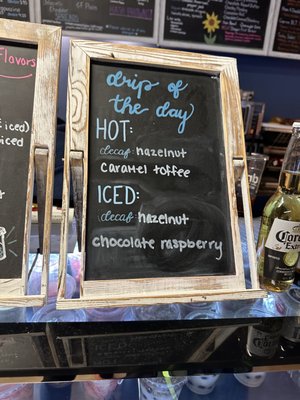 drip of
the day
HOT:
decaf: hazelnut
caramel toffee
ICED:
decaf: hazelnut
chocolate raspberry
Flavors
iced)
iced
Corona
Extra